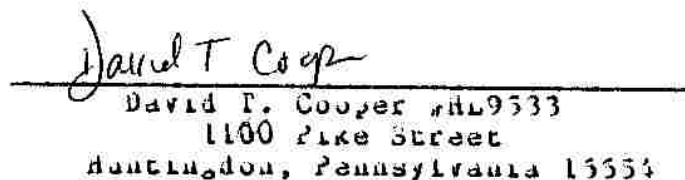 David T Coop
David T. Cooper #HL9533
1100 Pike Street
Huntingdon, Pennsylvania